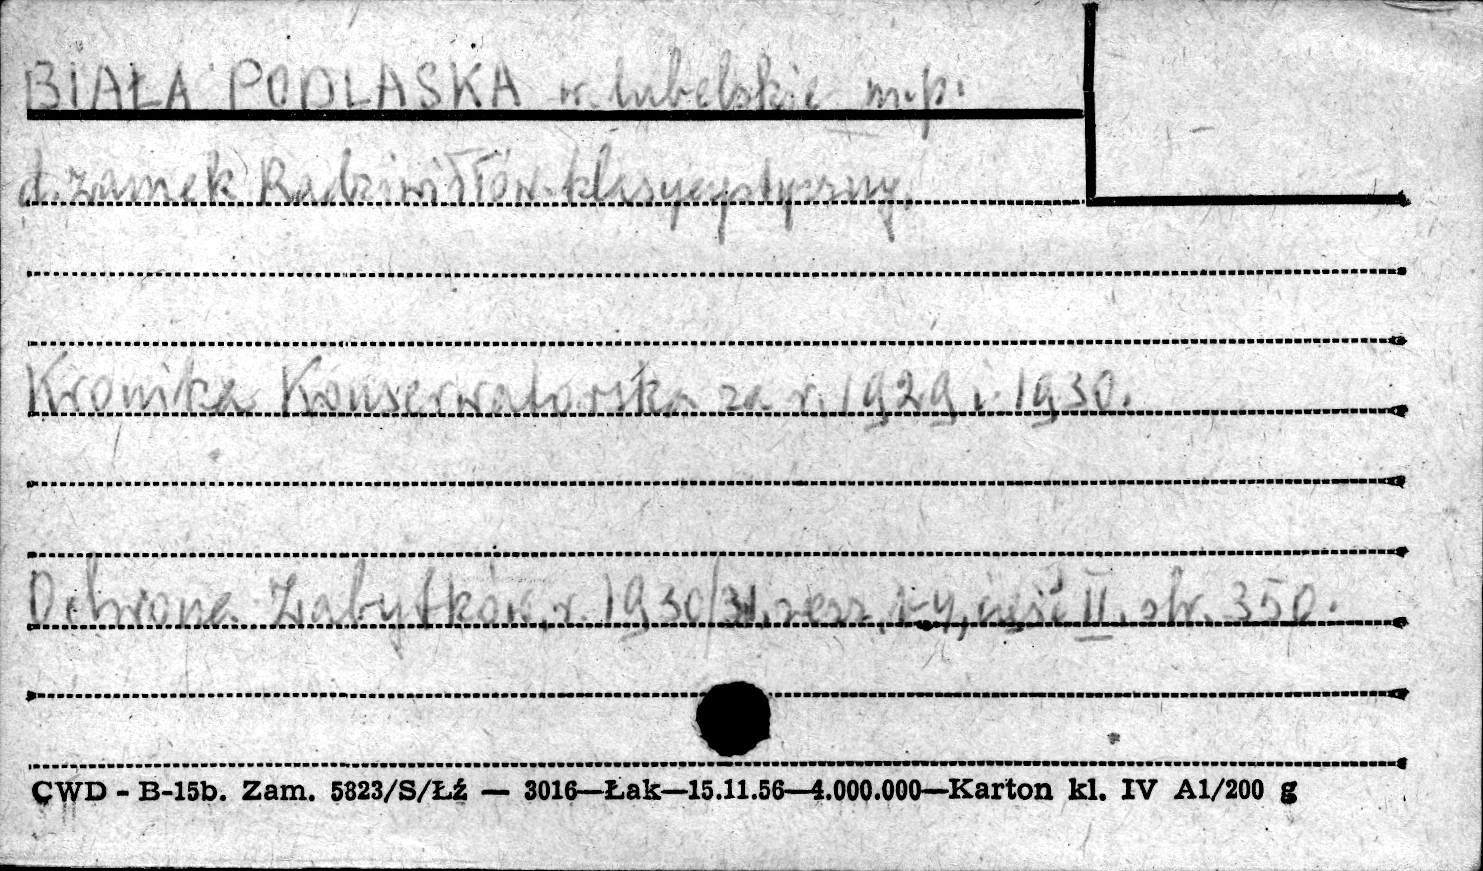 BIAŁA PODLASKA w. lubelskie m.p.
d. zamek Radziwiłłów klasycystyczny.
Kronika Konserwatorska za r. 1929 i 1930.
Ochrona Zabytków, r. 1930/31, zesz. 1-4, część II, str. 350.
CWD - B-15b. Zam. 5823/S/Łź — 3016—Łak—15.11.56—4.000.000—Karton kl. IV A1/200 g